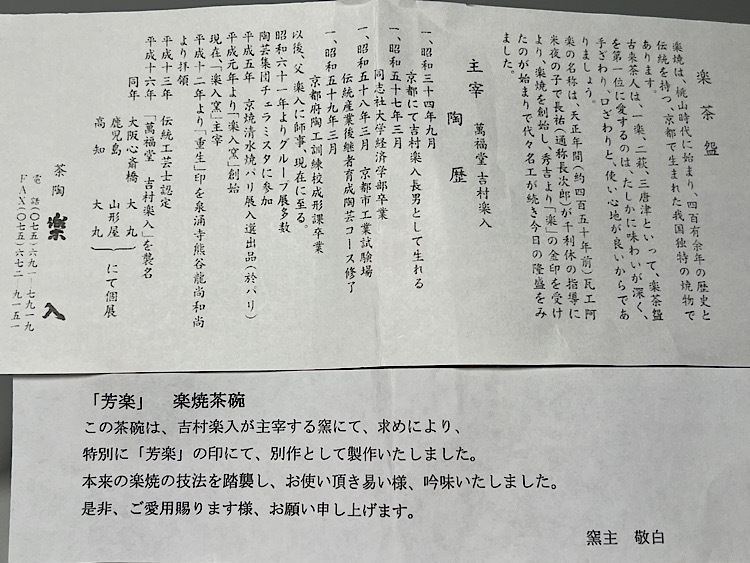 楽茶盌
楽焼は、桃山時代に始まり、四百有余年の歴史と
伝統を持つ、京都で生まれた我国独特の焼物で
あります。
古来茶人は、一楽、二萩、三唐津といって、楽茶盌
を第一位に愛するのは、たしかに味わいが深く、
手ざわり、口ざわりと、使い心地が良いからであ
りましょう。
楽の名称は、天正年間（約四百五十年前）瓦工阿
米夜の子で長祐（通称長次郎）が千利休の指導に
より、楽焼を創始し、秀吉より「楽」の金印を受け
たのが始まりで代々名工が続き今日の隆盛をみ
ました。
主宰 萬福堂 吉村楽入
陶歴
一、昭和三十四年九月
京都にて吉村楽入長男として生れる
一、昭和五十七年三月
同志社大学経済学部卒業
一、昭和五十八年三月 京都市工業試験場
伝統産業後継者育成陶芸コース修了
一、昭和五十九年三月
京都府陶工訓練校成形課卒業
以後、父 楽入に師事、現在に至る。
昭和六十一年よりグループ展多数
陶芸集団チェラミスタに参加
平成五年 京焼清水焼パリ展入選出品（於パリ）
平成元年より「楽入窯」創始
現在、「楽入窯」主宰
平成十二年より「重生」印を泉涌寺熊谷龍尚和尚
より拝領
平成十三年 伝統工芸士認定
平成十六年 「萬福堂 吉村楽入」を襲名
同年 大阪心斎橋 大丸
鹿児島 山形屋
高知 大丸
にて個展
茶陶 楽入
電話（〇七五）六九一ー七九一九
FAX（〇七五）六七二ー九一五一
「芳楽」 楽焼茶碗
この茶碗は、吉村楽入が主宰する窯にて、求めにより、
特別に「芳楽」の印にて、別作として製作いたしました。
本来の楽焼の技法を踏襲し、お使い頂き易い様、吟味いたしました。
是非、ご愛用賜ります様、お願い申し上げます。
窯主 敬白